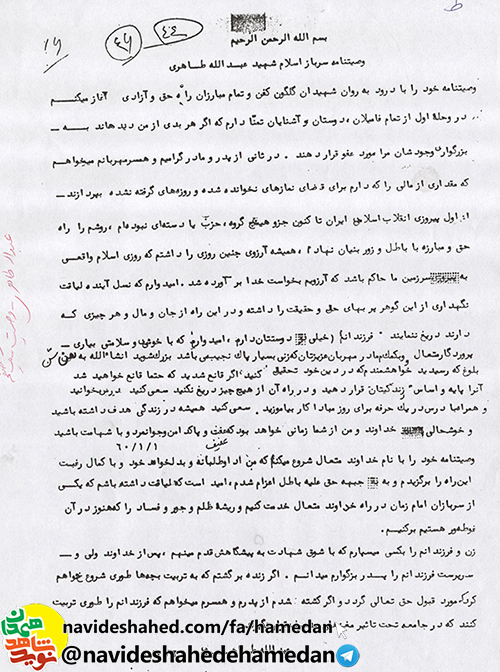 ط
۱۶
۲۶
۴۴
بسم الله الرحمن الرحیم
وصیتنامه سرباز اسلام شهید عبدالله طاهری
وصیتنامه خود را با درود به روان شهیدان گلگون کفن و تمام مبارزان راه حق و آزادی آغاز میکنم
در وحلهٔ اول از تمام فامیلان، دوستان و آشنایان تمنّا دارم که اگر هر بدی از من دیده‌اند به
بزرگواری وجودشان مرا مورد عفو قرار دهند. در ثانی از پدر و مادر گرامیم و همسر مهربانم میخواهم
که مقداری از مالی را که دارم برای قضای نمازهای نخوانده شده و روزه‌های گرفته نشده بپردازند
از اول پیروزی انقلاب اسلامی ایران تا کنون جزو هیچ گروه، حزب یا دسته‌ای نبوده‌ام، روشم را راه
حق و مبارزه با باطل و زور بنیان نهادم، همیشه آرزوی چنین روزی را داشتم که روزی اسلام واقعی
به سرزمین ما حاکم باشد که آرزویم بخواست خدا برآورده شد. امیدوارم که نسل آینده لیاقت
نگهداری از این گوهر پر بهای حق و حقیقت را داشته و در این راه از جان و مال و هر چیزی که
دارند دریغ ننمایند. فرزندانم (خیلی دوستتان دارم، امیدوارم که با خوشی و سلامتی بیاری
پروردگار متعال و بکمک مادر مهربان عزیزتان که زنی بسیار پاک نجیب می باشد بزرگ شوید انشاءالله به سن
بلوغ که رسیدید خواهشمندم که در دین خود تحقیق کنید اگر قانع شدید که حتما قانع خواهید شد
آنرا پایه و اساس زندگیتان قرار دهید و در راه آن از هیچ چیز دریغ نکنید سعی کنید درس بخوانید
و همراه با درس در یک حرفه برای روز مبادا کار بیاموزید. سعی کنید همیشه در زندگی هدف داشته باشید
و خوشحالی خداوند و من از شما زمانی خواهد بود که عفیف و پاکدامن و جوانمرد و با شهامت باشید
عفیف
۶۰/۱/۱
وصیتنامه خود را با نام خداوند متعال شروع میکنم که من داوطلبانه و بدلخواه خود و با کمال رغبت
این راه را برگزیدم و به جبهه حق علیه باطل اعزام شدم، امید است که لیاقت داشته باشم که یکی
از سربازان امام زمان در راه خداوند متعال خدمت کنیم و ریشهٔ ظلم و جور و فساد را که هنوز در آن
غوطه‌ور هستیم برکنیم.
زن و فرزندانم را بکسی میسپارم که با شوق شهادت به پیشگاهش قدم مینهم، پس از خداوند ولی و
سرپرست فرزندانم را پدر بزگوارم میدانم. اگر زنده برگشتم که به تربیت بچه‌ها طوری شروع بخواهم
کرد که مورد قبول حق تعالی گردد و اگر کشته شدم از پدرم و همسرم میخواهم که فرزندانم را طوری تربیت
کنند که در جامعه تحت تاثیر
navideshahed.com/fa/hamedan
@navideshahedehamedan
نوید شاهد
همدان